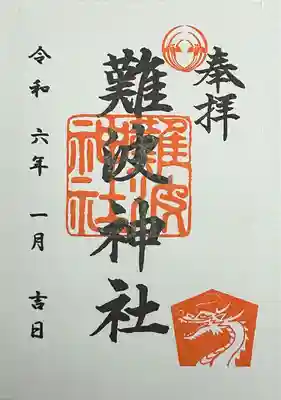 奉拝
難波神社
難波
神社
令和六年一月吉日